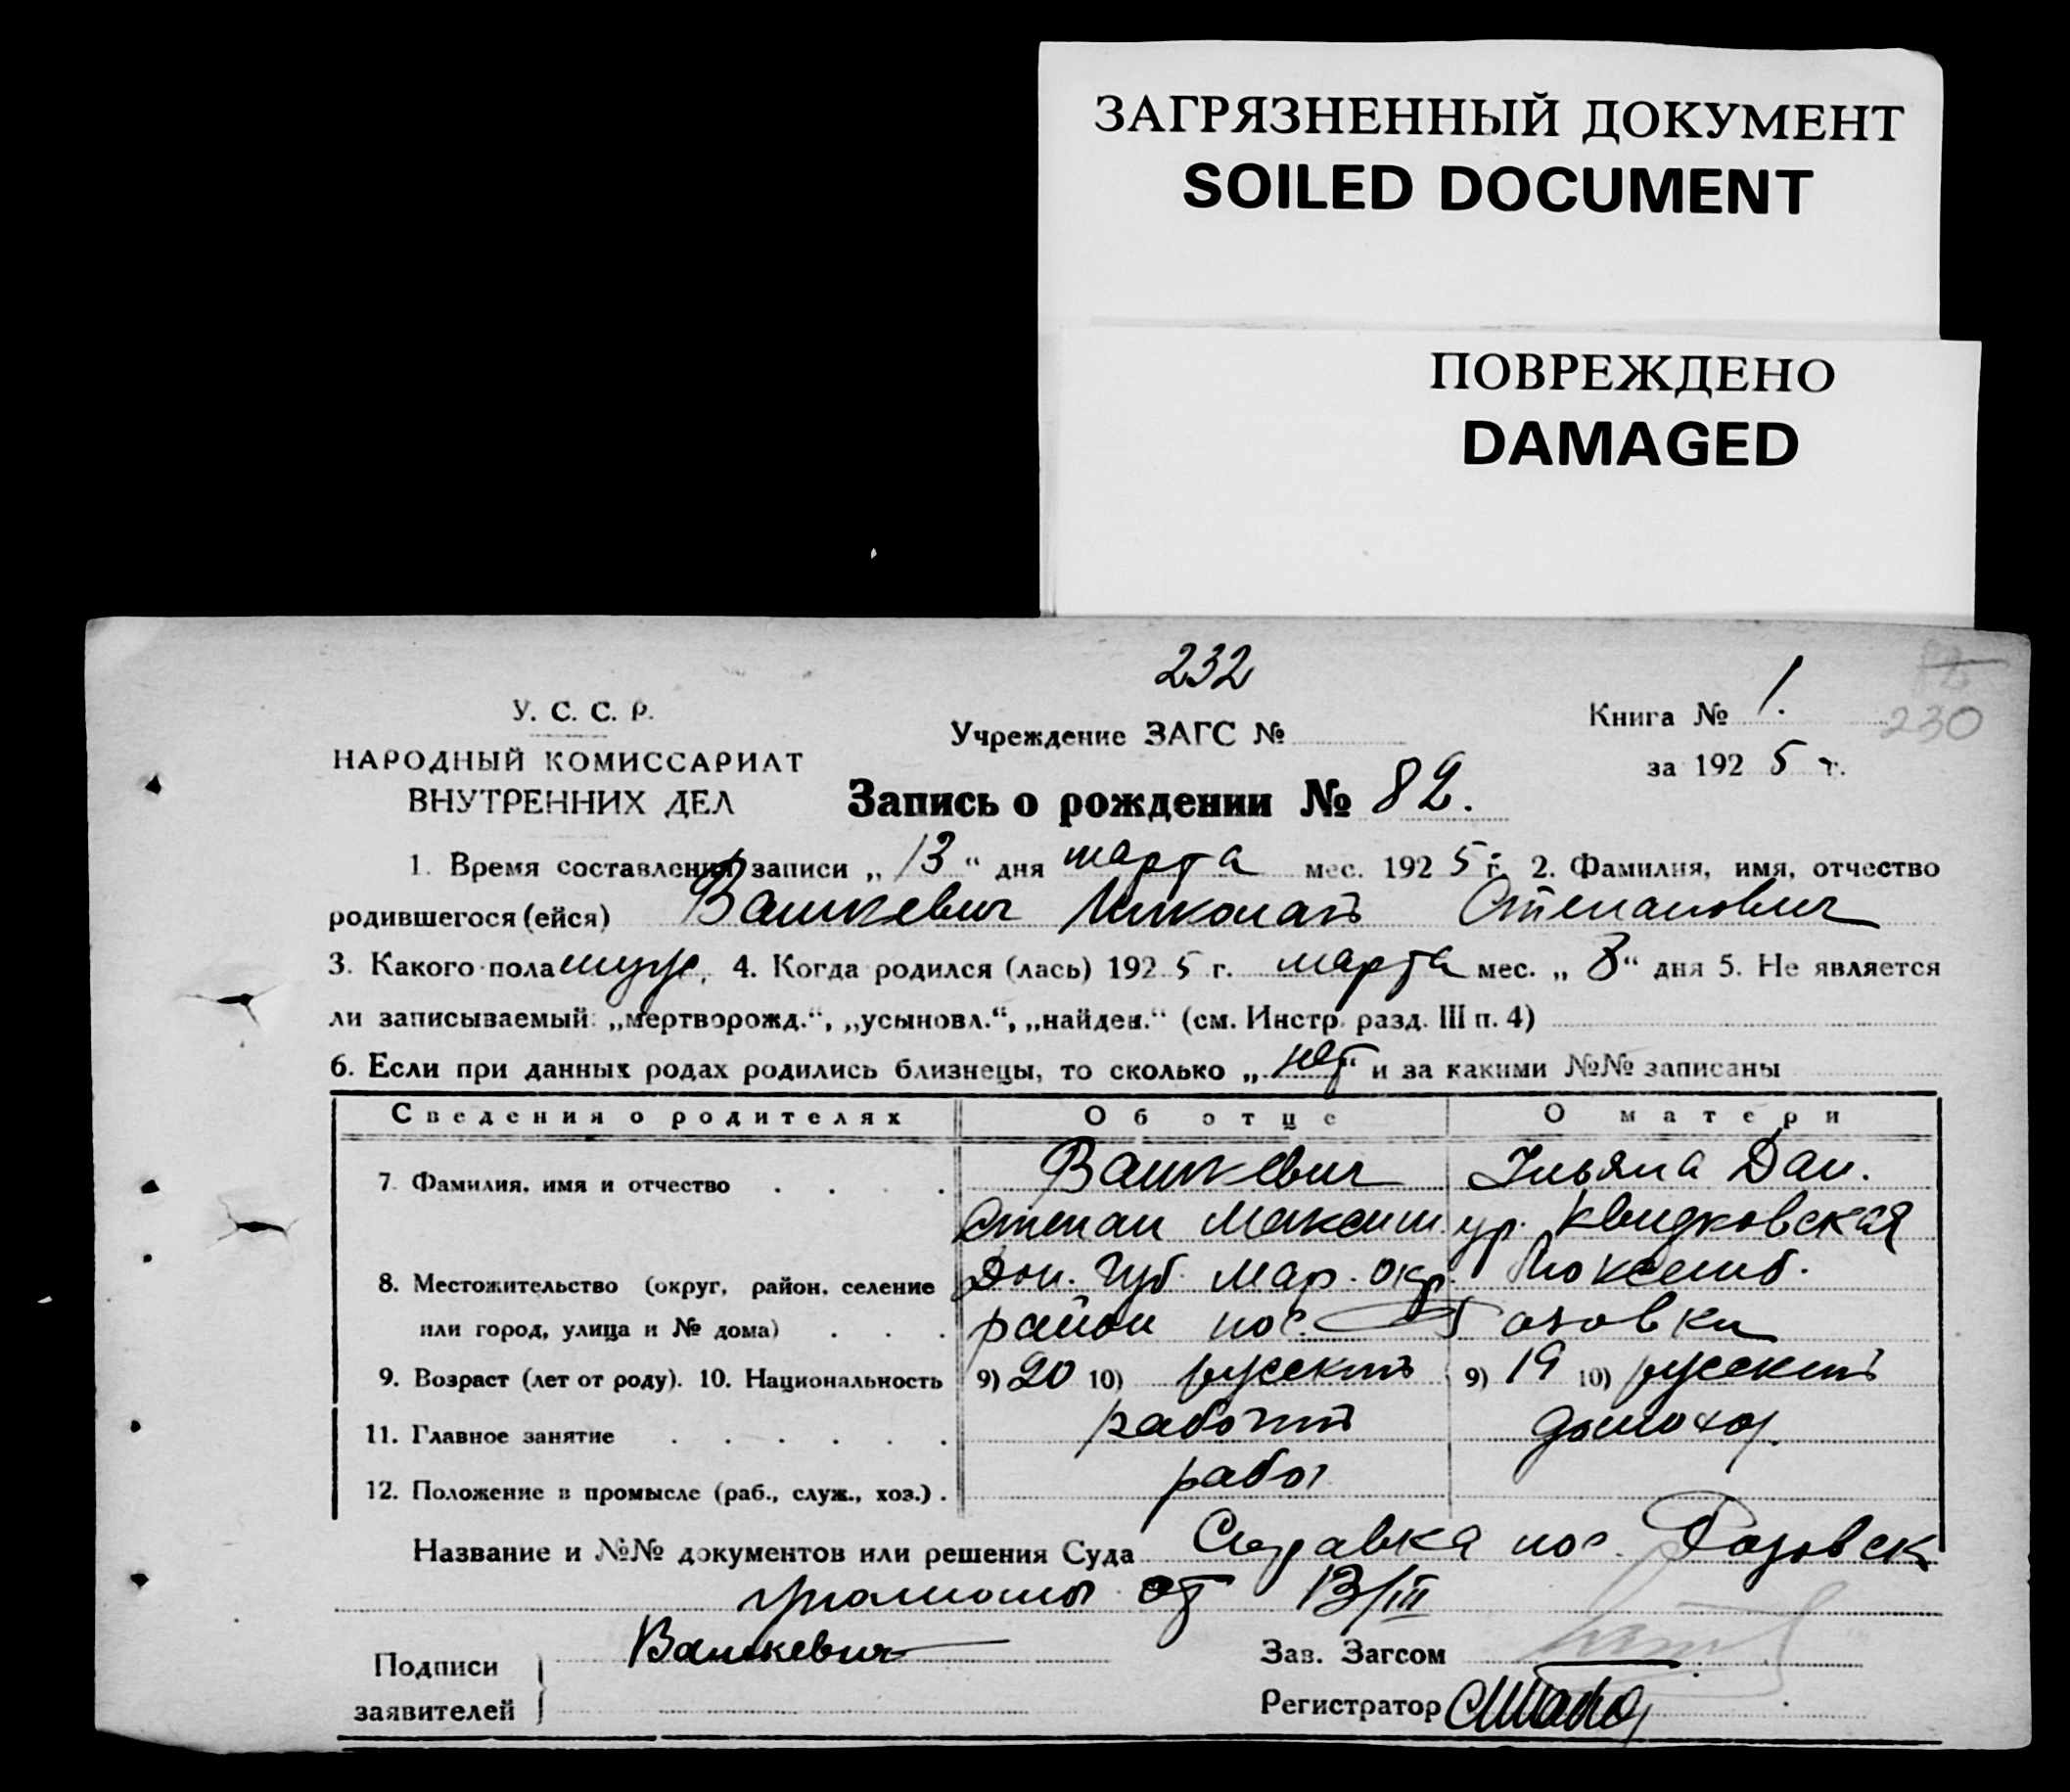 ЗАГРЯЗНЕННЫЙ ДОКУМЕНТ
SOILED DOCUMENT
ПОВРЕЖДЕНО
DAMAGED
232
У. С. С. Р.
НАРОДНЫЙ КОМИССАРИАТ
ВНУТРЕННИХ ДЕЛ
Учреждение ЗАГС №
Книга № 1.
230
за 1925 г.
Запись о рождении № 82.
1. Время составления записи „13“ дня марта мес. 1925 г. 2. Фамилия, имя, отчество
родившегося (ейся) Вашкевич Николай Степанович
3. Какого пола муж. 4. Когда родился (лась) 1925 г. марта мес. „8“ дня 5. Не является
ли записываемый: „мертворожд.“, „усыновл.“, „найден.“ (см. Инстр. разд. III п. 4)
6. Если при данных родах родились близнецы, то сколько „нет“ и за какими №№ записаны
Сведения о родителях Об отце О матери
7. Фамилия, имя и отчество Вашкевич Ульяна Дан.
Степан Максим. ур. Квидковская
8. Местожительство (округ, район, селение Дон. Губ. Мар. окр. Люксемб.
или город, улица и № дома) район пос. Розовки
9. Возраст (лет от роду). 10. Национальность 9) 20 10) русский 9) 19 10) русский
11. Главное занятие рабочий домохоз.
12. Положение в промысле (раб., служ., хоз.) рабоч
Название и №№ документов или решения Суда Справка пос. Розовск
от 13/III
Подписи Вашкевич Зав. Загсом
заявителей Регистратор